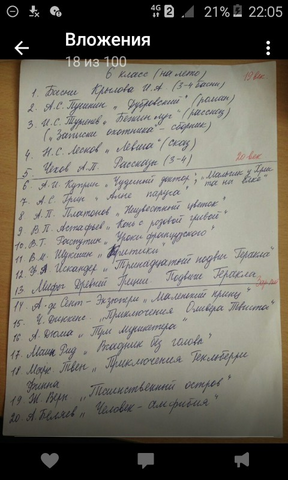 4G 2 21% 22:05
Вложения
18 из 100
6 класс (на лето)
19 век
1. Басни Крылова И.А (3-4 басни)
2. А.С. Пушкин „Дубровский" (роман)
3. И.С. Тургенев „Бежин луг" (рассказ)
(„Записки охотника" - сборник)
4. Н.С. Лесков „Левша" (сказ)
5. Чехов А.П. Рассказы (3-4)
20 век
6. А.И. Куприн „Чудесный доктор",
7. А.С. Грин „Алые паруса"
8. А.П. Платонов „Неизвестный цветок"
9. В.П. Астафьев „Конь с розовой гривой"
10. В.Г. Распутин „Уроки французского"
11. В.М. Шукшин „Критики"
12. Ф.А Искандер „Тринадцатый подвиг Геракла"
13. Мифы Древней Греции. Подвиги Геракла.
14. А-де Сент-Экзюпери „Маленький принц"
15. Ч. Диккенс „Приключения Оливера Твиста"
16. А. Дюма „Три мушкетера"
17. Майн Рид „Всадник без головы"
18. Марк Твен „Приключения Гекльберри
Финна
19. Ж. Верн „Таинственный остров"
20. А. Беляев „Человек-амфибия"